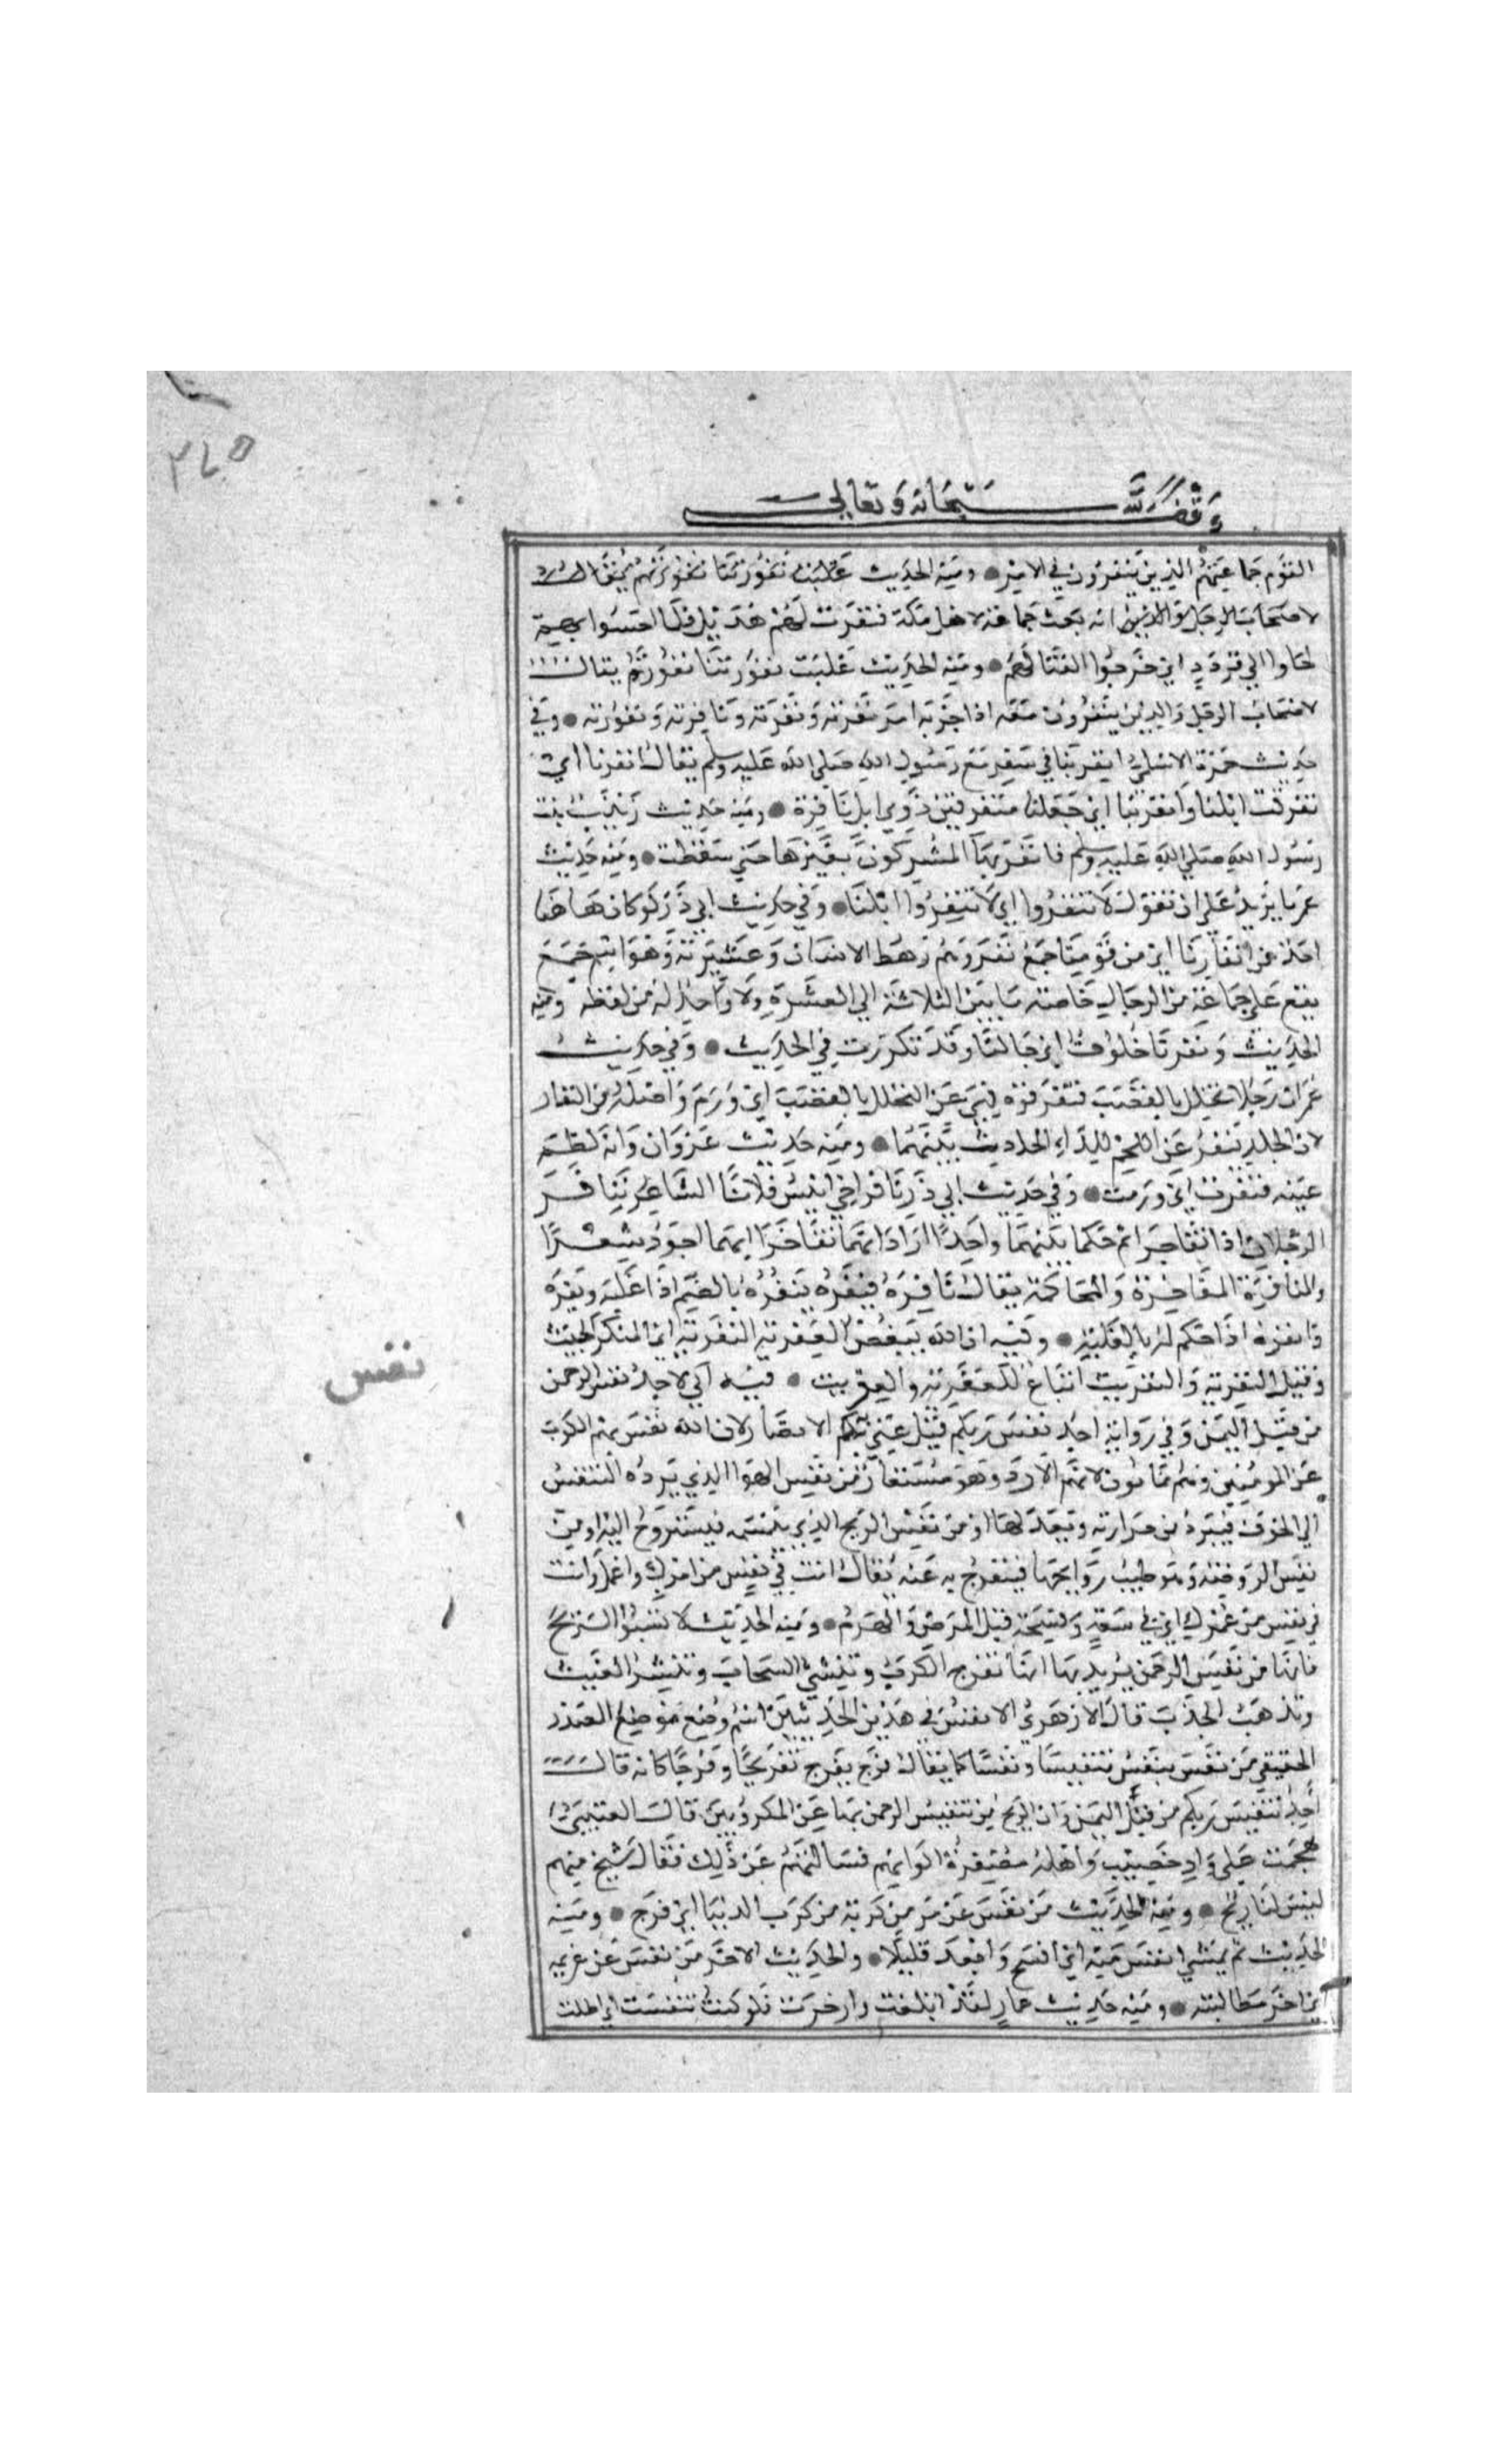 وقف لله سبحانه وتعالى
القوم جماعتهم الذين ينفرون في الامر ومنه الحديث غلبت نفورتنا نفورتهم يقال
لاصحاب الرجل والذين انه بعث جماعة لاهل مكة فنفرت لهم هذيل فلما احسوا بهم
لجاوا الي قردد اي خرجوا لقتالهم ومنه الحديث غلبت نفورتنا نفورتهم يقال
لاصحاب الرجل والذين ينفرون معه اذا حزبه امر نفرته ونفرته ونافرته ونفورته وفي
حديث حمزة الاسلمي انفر بنا في سفر مع رسول الله صلي الله عليه وسلم يقال انفرنا اي
تفرقت ابلنا وانفر بنا اي جعلنا منفرين ذوي ابل نافرة ومنه حديث زينب بنت
رسول الله صلي الله عليه وسلم فانفر بها المشركون بعيرها حتي سقطت ومنه حديث
عمر ما يزيد علي ان تقول لا تنفروا اي لا تنفروا ابلنا وفي حديث ابي ذر لو كان هاهنا
احد من انفارنا اي من قومنا جمع نفر وهم رهط الانسان وعشيرته وهو اسم جمع
يقع علي جماعة من الرجال خاصة ما بين الثلاثة الي العشرة ولا واحد له من لفظه ومنه
الحديث ونفرنا خلوف اي رجالنا وقد تكررت في الحديث وفي حديث
عمر ان رجلا تخلل بالقصب فنفر فوه فنهي عن التخلل بالقصب اي ورم واصله من النفار
لان الجلد ينفر عن اللحم للداء الحادث بينهما ومنه حديث غزوان وانه لطم
عينه فنفرت اي ورمت وفي حديث ابي ذر نافر اخي انيس فلانا الشاعر تنافر
الرجلان اذا تفاخرا ثم حكما بينهما واحدا اراد انهما تفاخرا ايهما اجود شعرا
والمنافرة المفاخرة والمحاكمة يقال نافره فنفره ينفره بالضم اذا غلبه ونفره
وانفره اذا حكم له بالغلبة وفيه ان الله يبغض العفرية النفرية اي المنكر الخبيث
وقيل النفرية والنفريت اتباع للعفرية والعفريت فيه اني لاجد نفس الرحمن
نفس
من قبل اليمن وفي رواية اجد نفس ربكم قيل عني بهم الانصار لان الله نفس بهم الكرب
عن المومنين وهم يمانون لانهم من الازد وهو مستعار من نفس الهوا الذي يرده التنفس
الي الجوف فيبرد من حرارته ويعدلها او من نفس الريح الذي يتنسمه فيستروح اليه او من
نفس الروضة وهو طيب روايحها فيتفرج به عنه يقال انت في نفس من امرك واعمل وانت
في نفس من عمرك اي في سعة وفسحة قبل المرض والهرم ومنه الحديث لا تسبوا الريح
فانها من نفس الرحمن يريد بها انها تفرج الكرب وتنشي السحاب وتنشر الغيث
وتذهب الجدب قال الازهري النفس في هذين الحديثين اسم وضع موضع المصدر
الحقيقي من نفس ينفس تنفيسا ونفسا كما يقال فرج يفرج تفريجا وفرجا كانه قال
اجد تنفيس ربكم من قبل اليمن وان الريح من تنفيس الرحمن بها عن المكروبين قال العتيبي
هجمت علي واد خصيب واهله مصفرة الوانهم فسالتهم عن ذلك فقال شيخ منهم
ليس لنا ريح ومنه الحديث من نفس عن مومن كربة من كرب الدنيا اي فرج ومنه
الحديث ثم يمشي انفس منه اي افسح وابعد قليلا والحديث الاخر من نفس عن غريمه
اي اخر مطالبته ومنه حديث عمار لقد ابلغت واوجزت فلو كنت تنفست اي اطلت